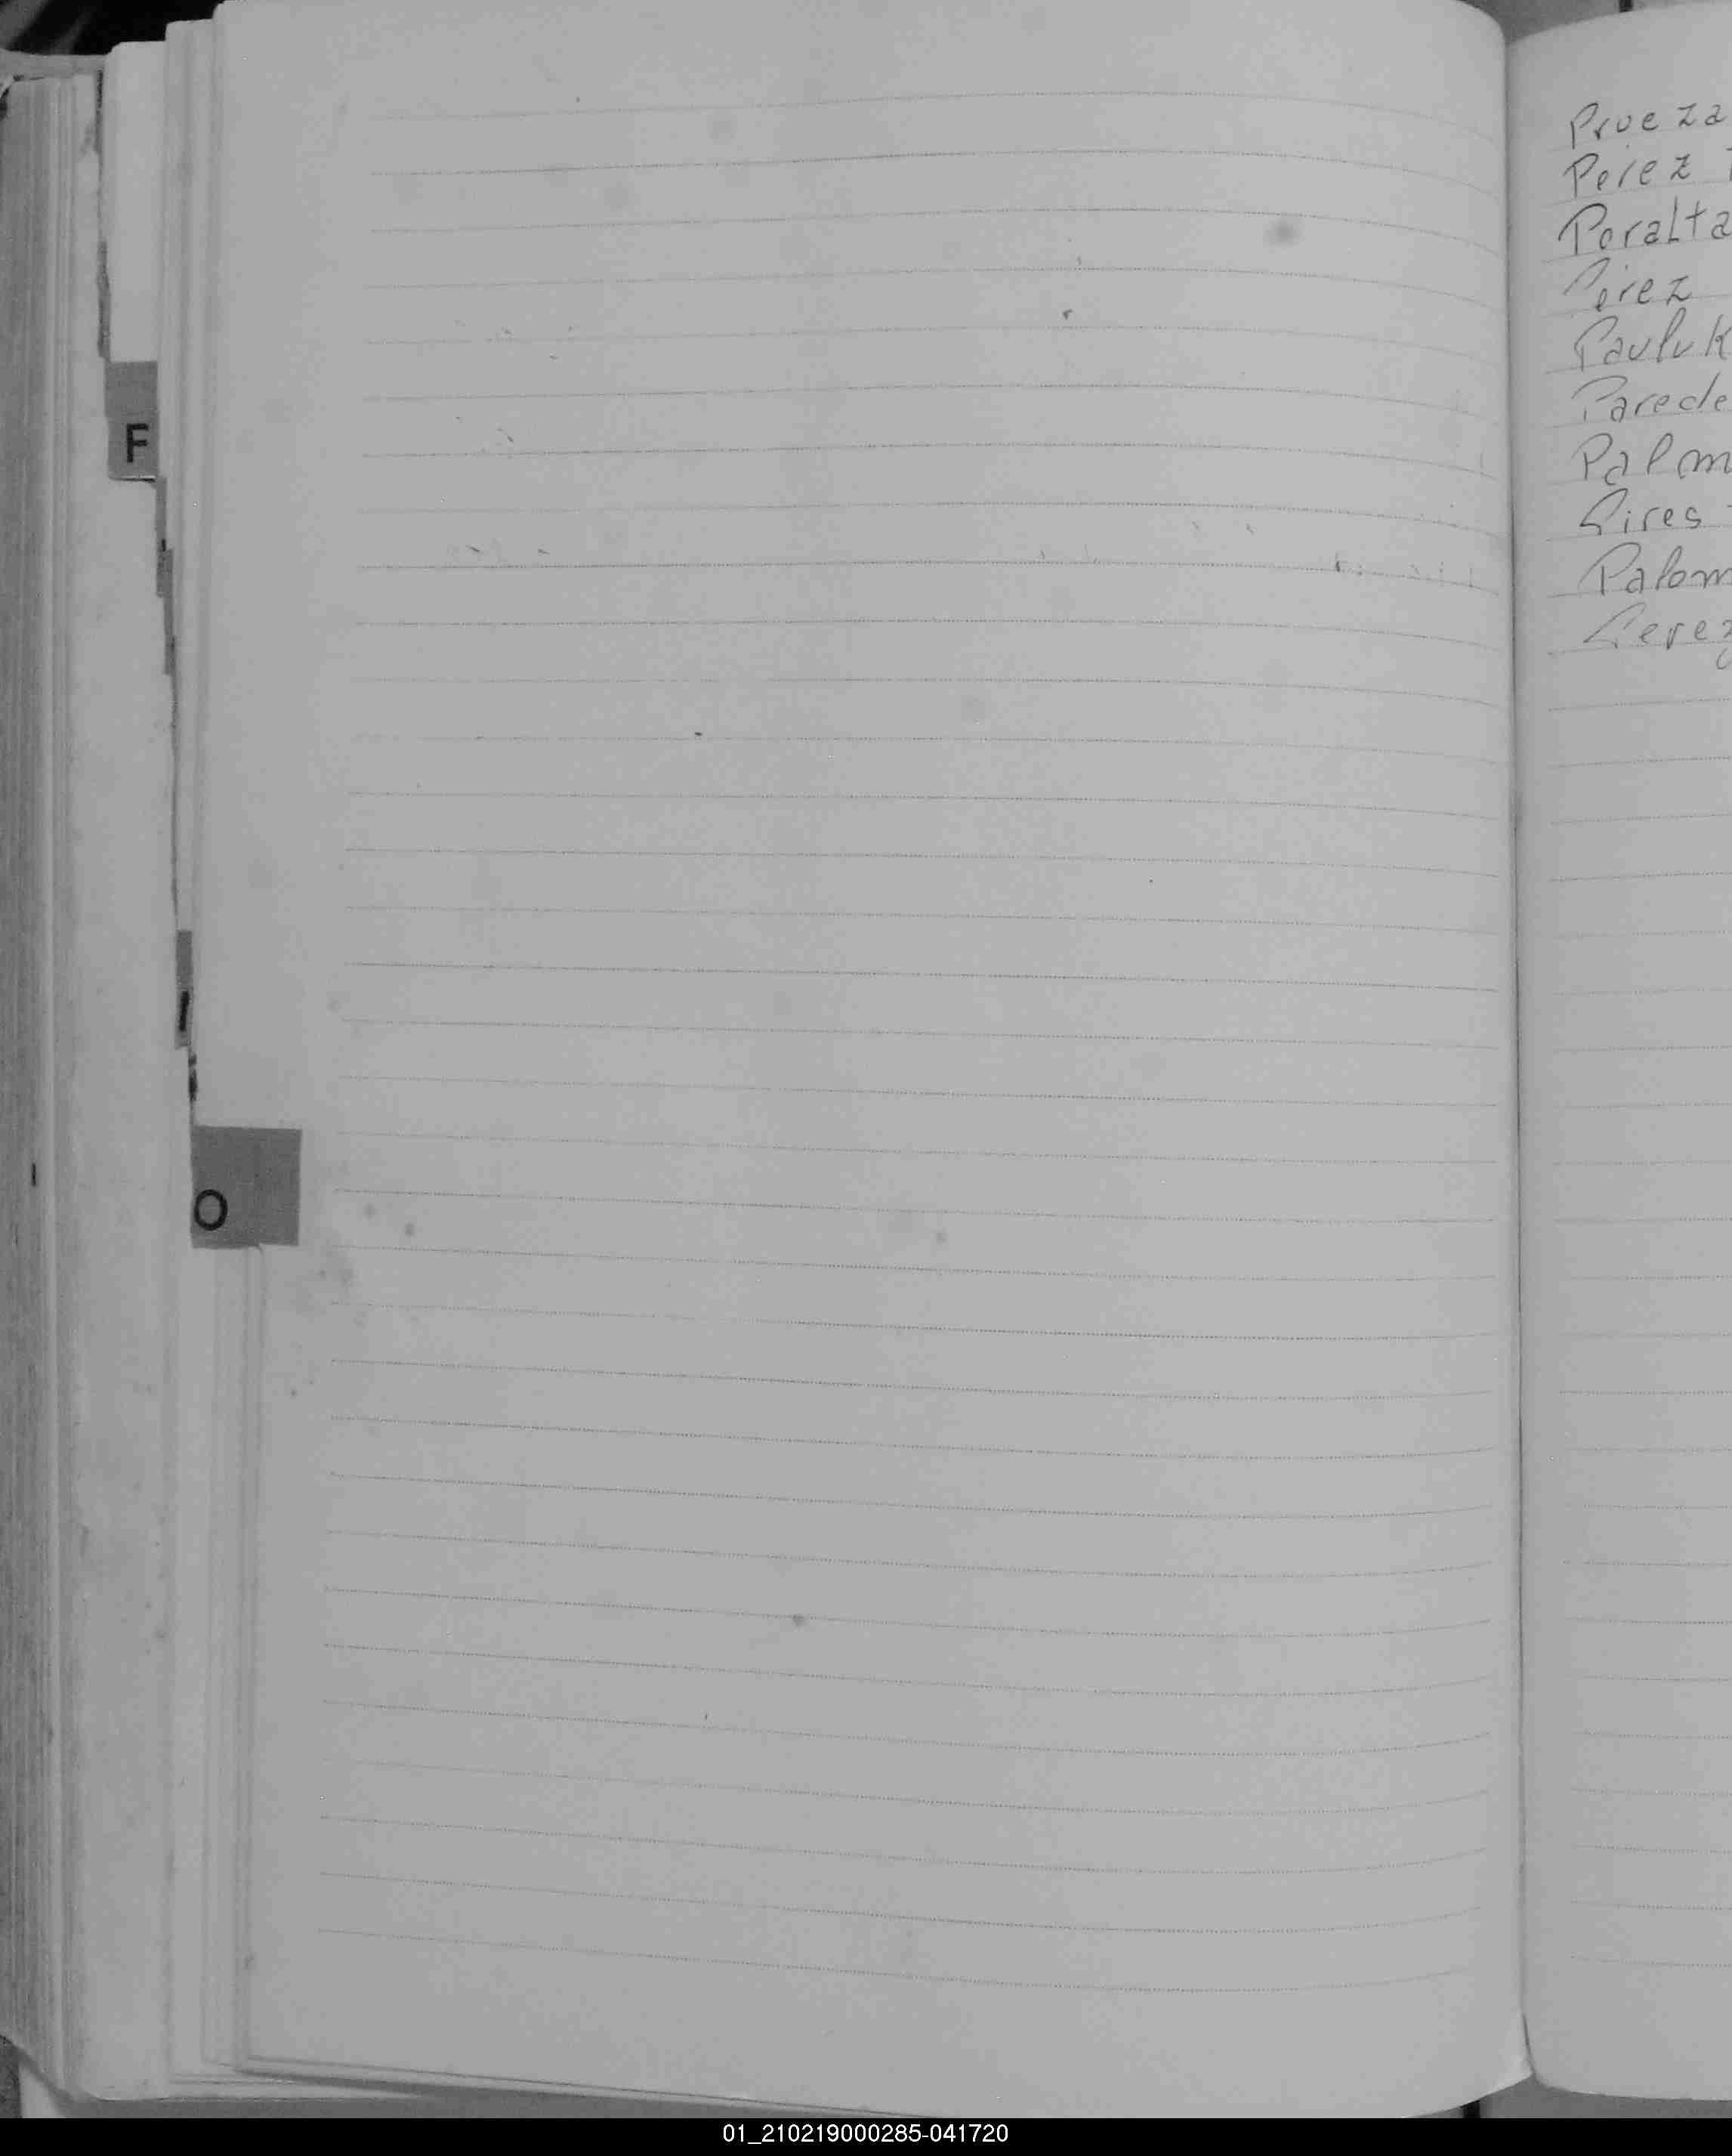 F
I
O
Prueza
Perez
Peralta
Perez
Pauluk
Parede
Palom
Pires
Palom
Perez
01_210219000285-041720